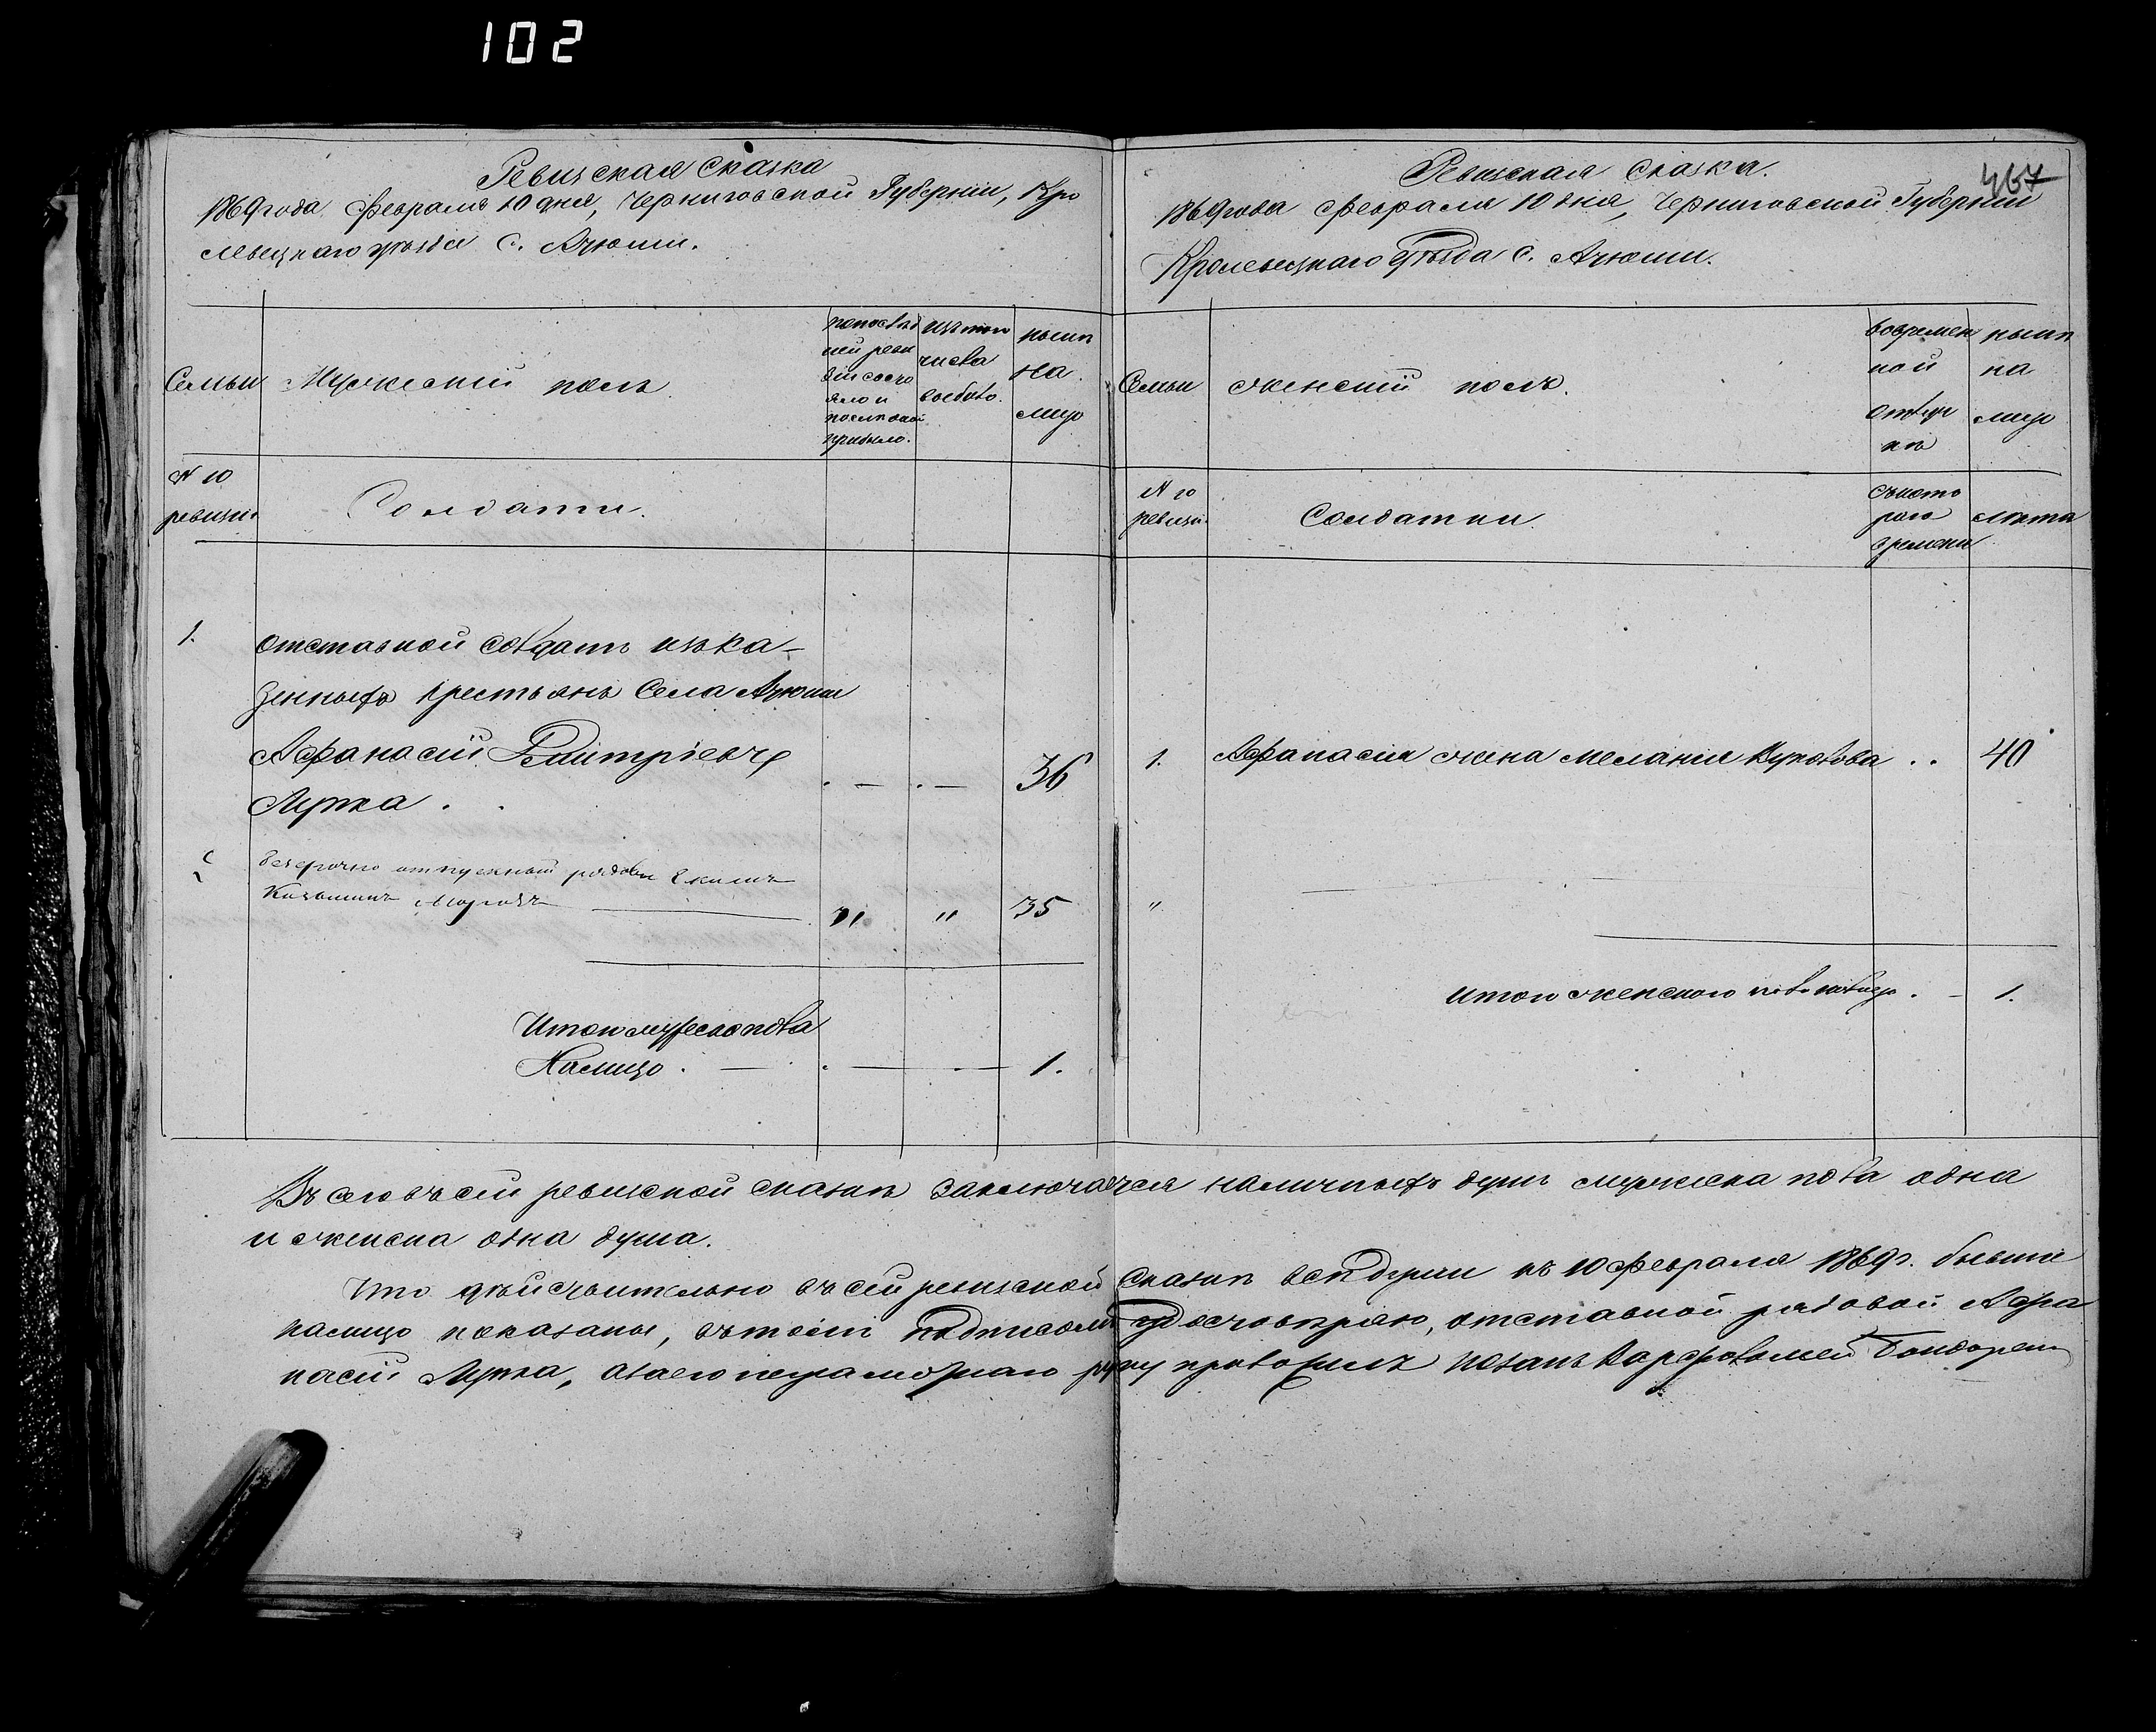 102
Ревизская Сказка
1869 года Февраля 10 дня, Черниговской Губернии, Кро
левецкаго уезда С. Ачюши.
Семьи
Мужеский полъ
по последней ревизіи состояло и после оной прибыло.
изъ того числа выбыло.
ныне на лицо
N 10 ревизіи
Солдаты.
1. отставной солдатъ изъ ка-
зенныхъ крестьянъ Села Ачюши
Афанасій Дмитріевъ
Лупка . . — . — 36
безсрочно отпускный рядовый Екимъ
" " 35
Итого мужеско пола
На лицо . — . — — 1.
467
Ревизская Сказка.
1869 года Февраля 10 дня, Черниговской Губерніи
Кролевецкаго Уѣзда с. Ачюши.
Семьи
женскій полъ.
во времен
ной
отлуч
кѣ
нынѣ
на
лицо
N 10
ревизіи
Солдатки
съ кото
раго
времени
лѣта
1. Афанасія жена Меланія . . 40
"
итого женского пола налицо . – 1.
Всего въ сей ревизской сказкѣ заключается наличныхъ душъ мужеска пола одна
и женска одна душа.
Что дѣйствительно въ сей ревизской сказкѣ всѣ души къ 10 Февраля 1869 г. бывшіе
налицо показаны, въ томъ подписомъ удостовѣряю, отставной рядовой Афа
насій Лупка, а за его неграмотнаго руку приложилъ козакъ Варфоломей Бондарен